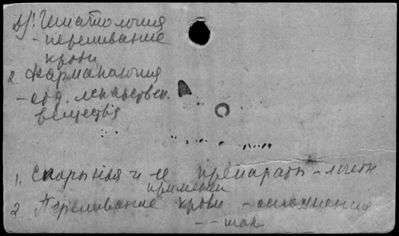 Гематология
- переливание
крови
2. Фармакология
- отд. лекарствен.
веществ
1. Спорынья и ее препараты - лечен
применен
2. Переливание крови - осложнения
- - шок